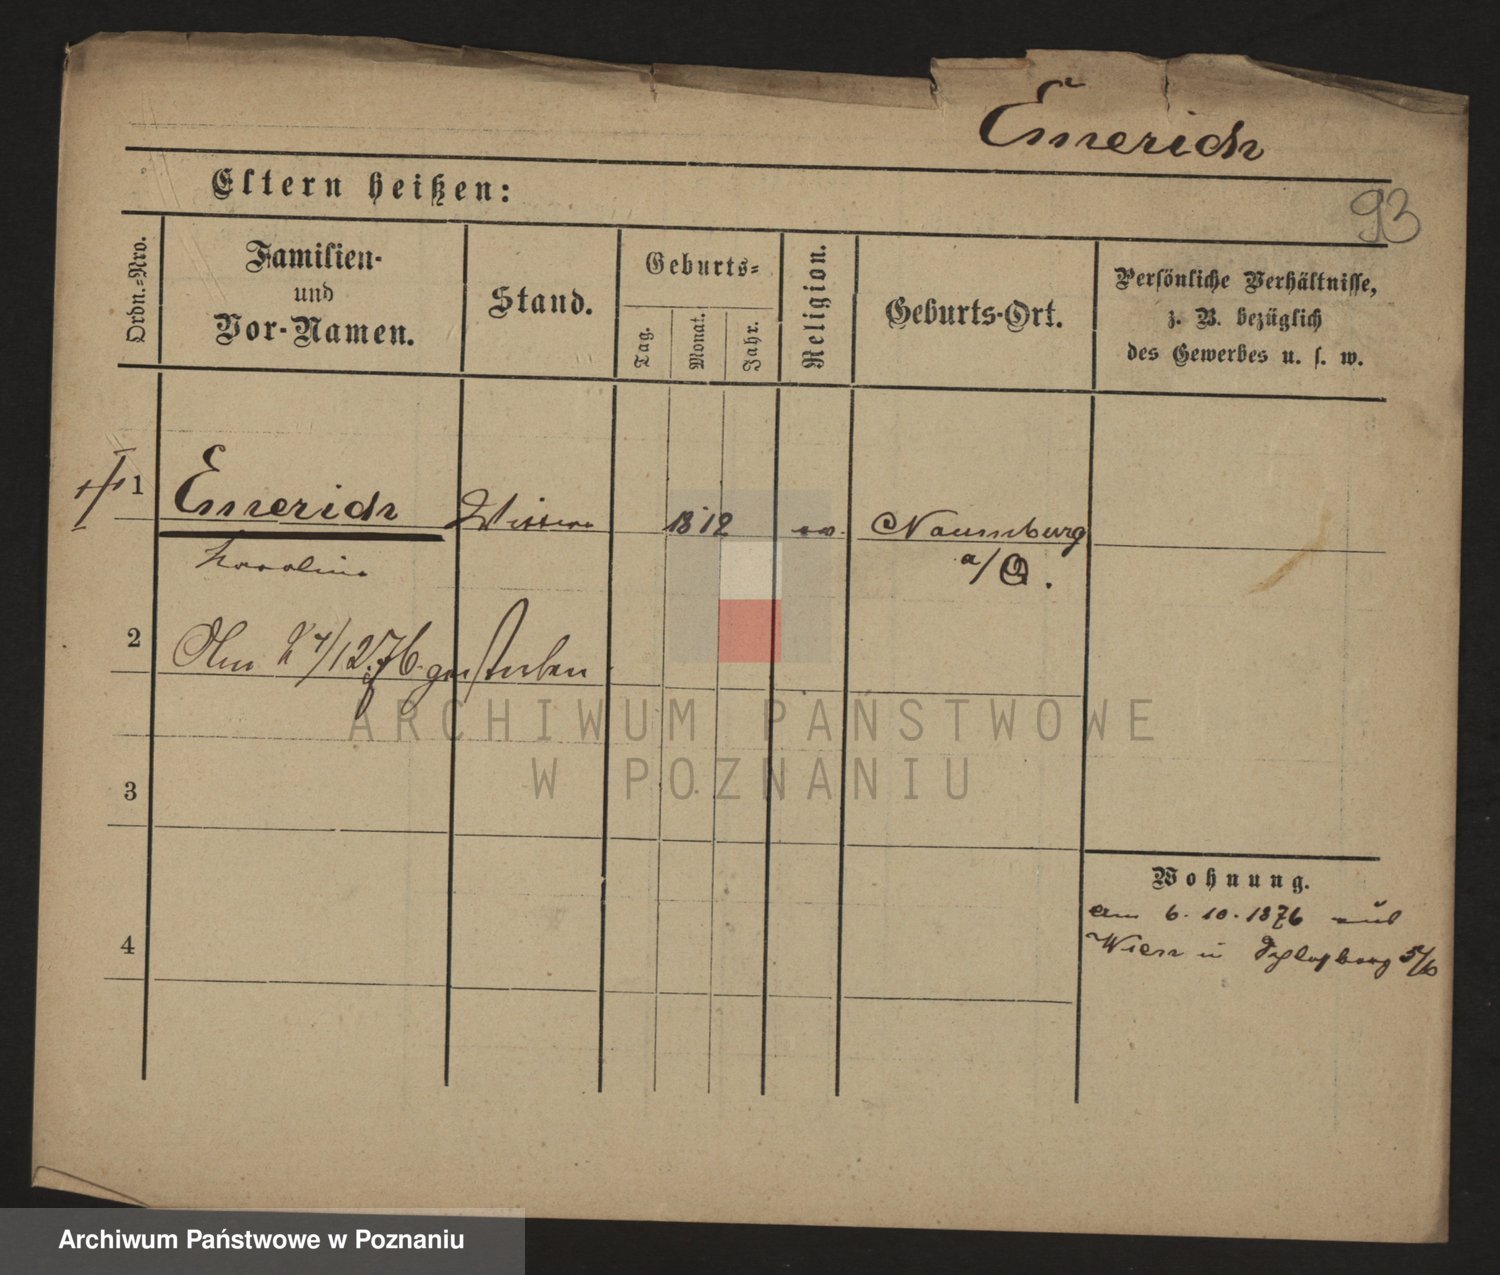 Emerich
93
Eltern heißen:
Ordn.-Nro.
Familien-
und
Vor-Namen.
Stand.
Geburts-
Tag.
Monat.
Jahr.
Religion.
Geburts-Ort.
Persönliche Verhältnisse,
z. B. bezüglich
des Gewerbes u. s. w.
1
Emerich
Wittwe
1812
ev.
Naumburg
a/Q.
Karoline
2
Am 24/12.76. gestorben
ARCHIWUM PAŃSTWOWE
W POZNANIU
3
Wohnung.
am 6.10.1876 aus
Wien n 5/6
4
Archiwum Państwowe w Poznaniu